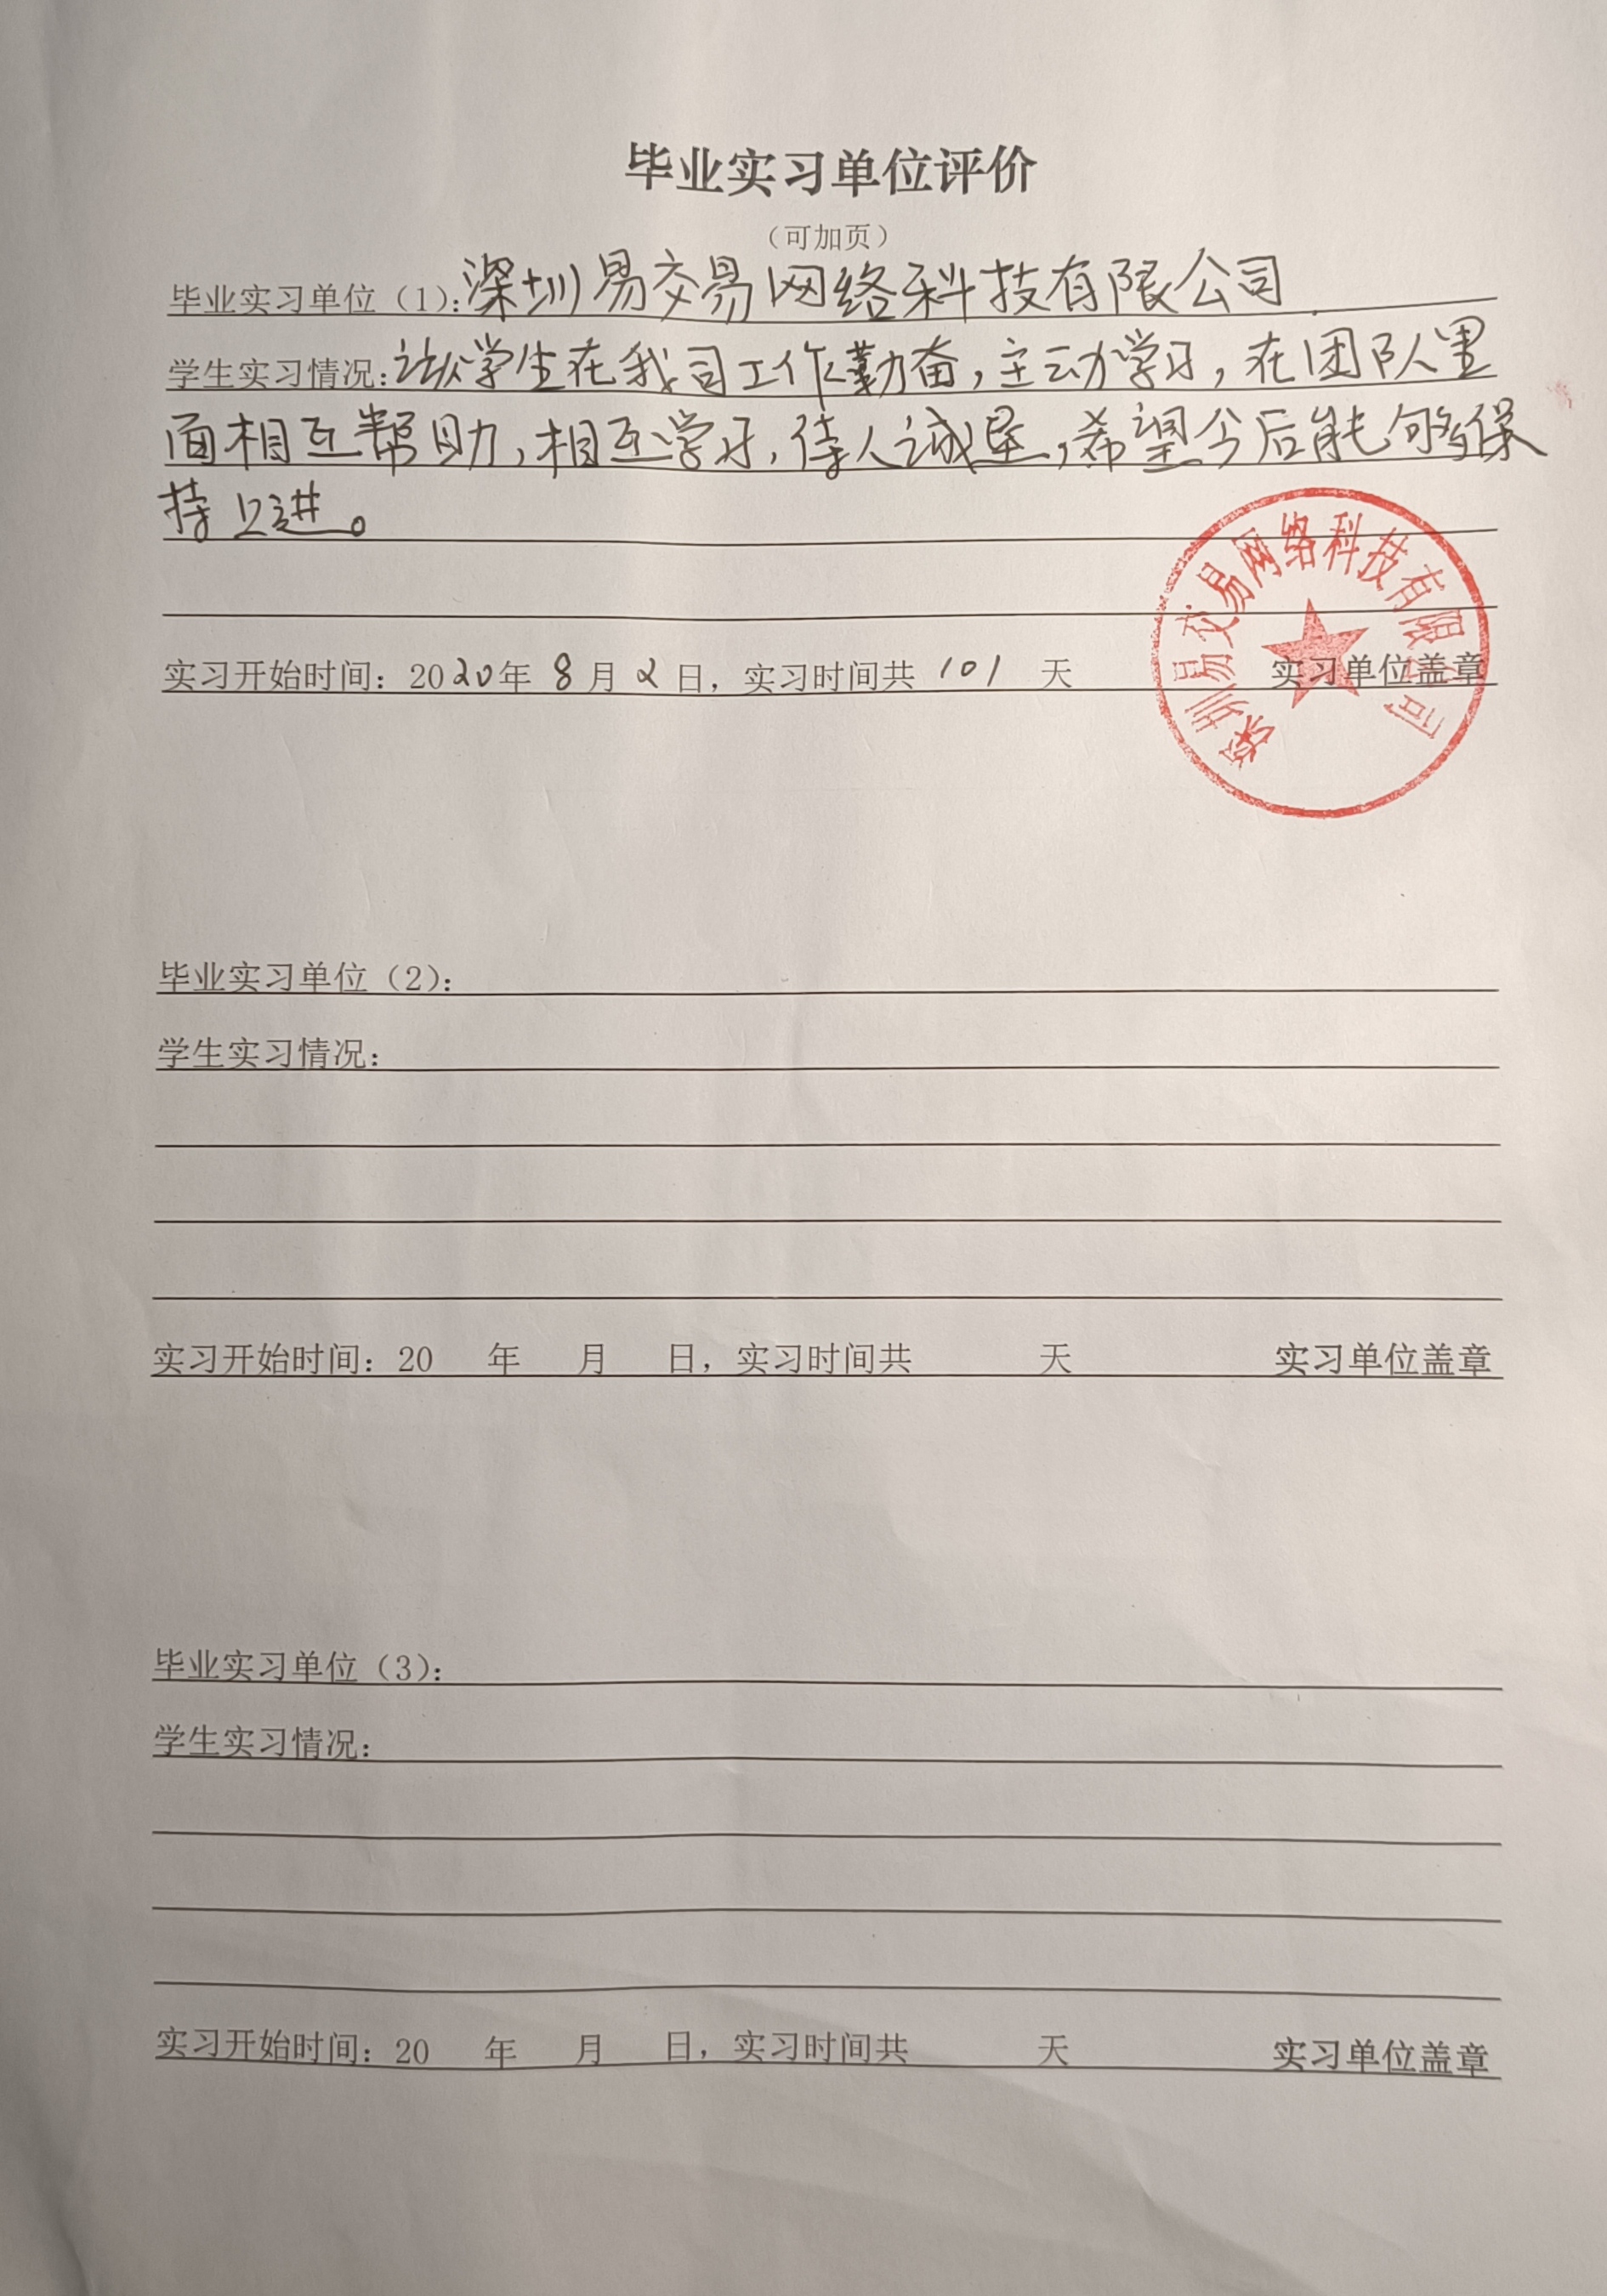 毕业实习单位评价
（可加页）
毕业实习单位（1）：深圳易交易网络科技有限公司
学生实习情况：该学生在我司工作勤奋，主动学习，在团队里
面相互帮助，相互学习，待人诚恳，希望今后能够保
持上进。
实习开始时间：2020年 8月 2日，实习时间共 101 天 实习单位盖章
深圳易交易网络科技有限公司
毕业实习单位（2）：
学生实习情况：
实习开始时间：20 年 月 日，实习时间共 天 实习单位盖章
毕业实习单位（3）：
学生实习情况：
实习开始时间：20 年 月 日，实习时间共 天 实习单位盖章